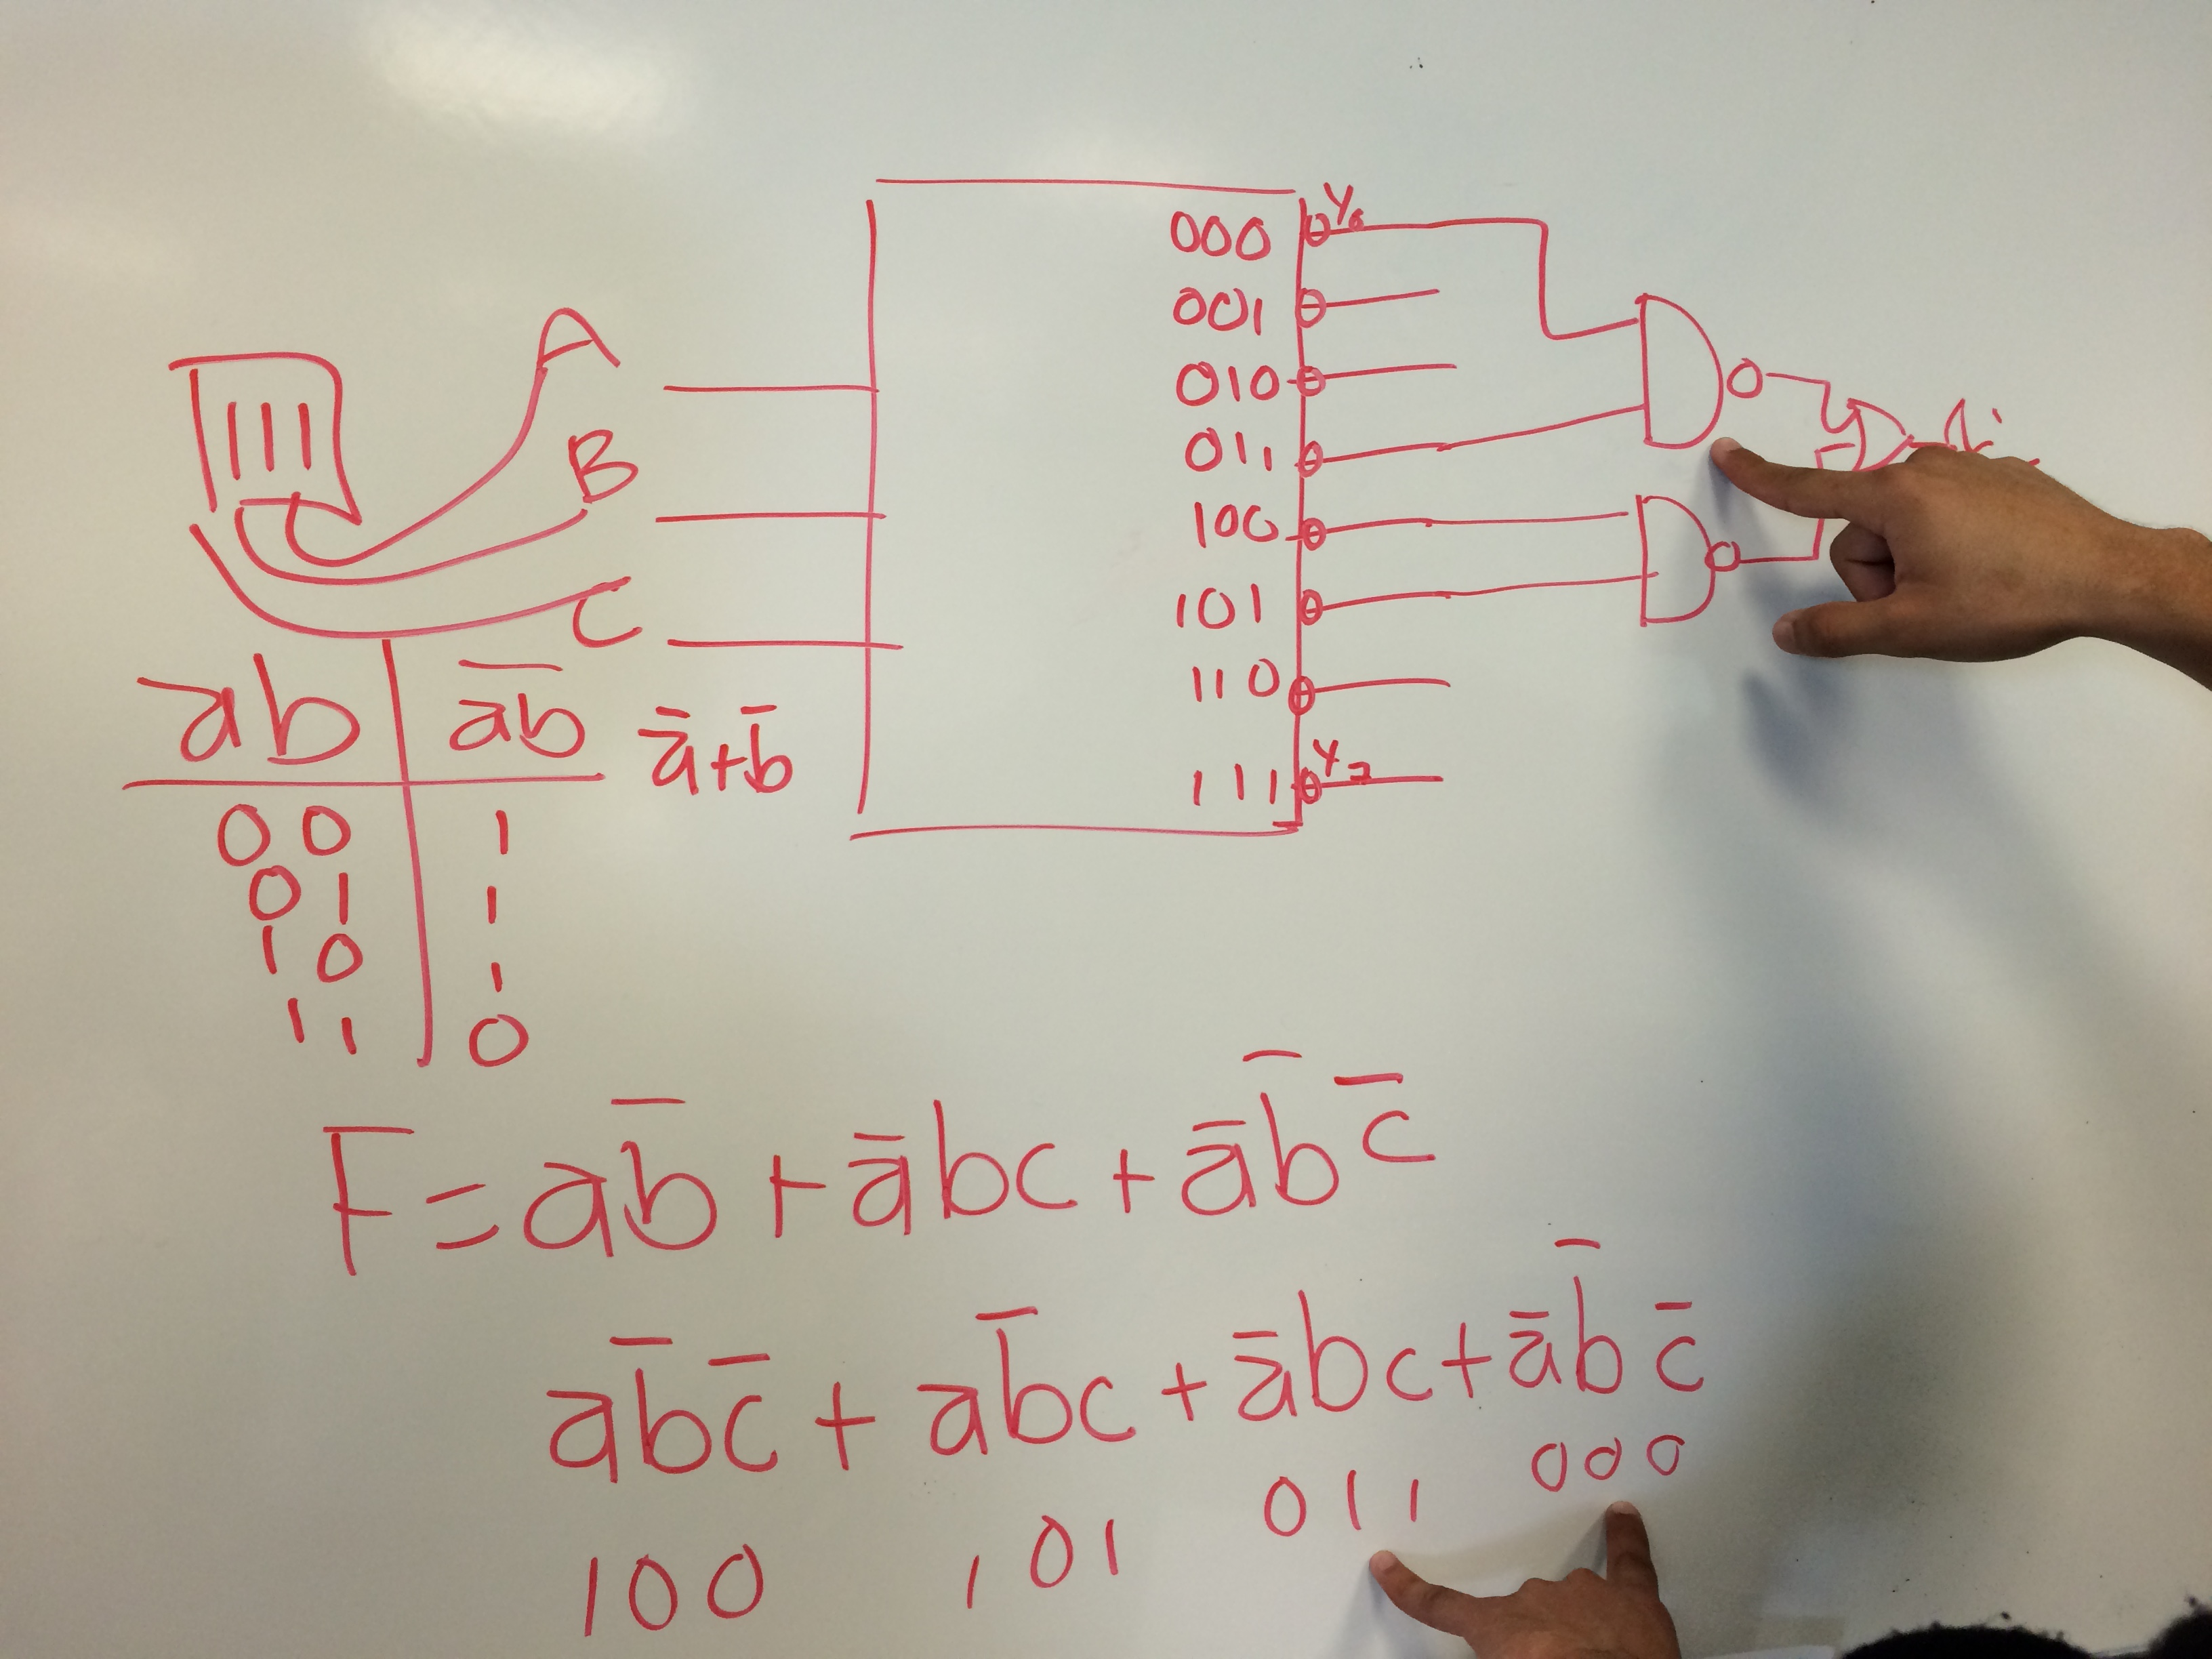 000 Y₀
001
010
011
100
101
110
111 Y₇
A
B
C
ab | a̅b̅ a̅+b̅
00 | 1
01 | 1
10 | 1
11 | 0
F=ab̅+a̅bc+a̅b̅c̅
ab̅c̅+ab̅c+a̅bc+a̅b̅c̅
100 101 011 000